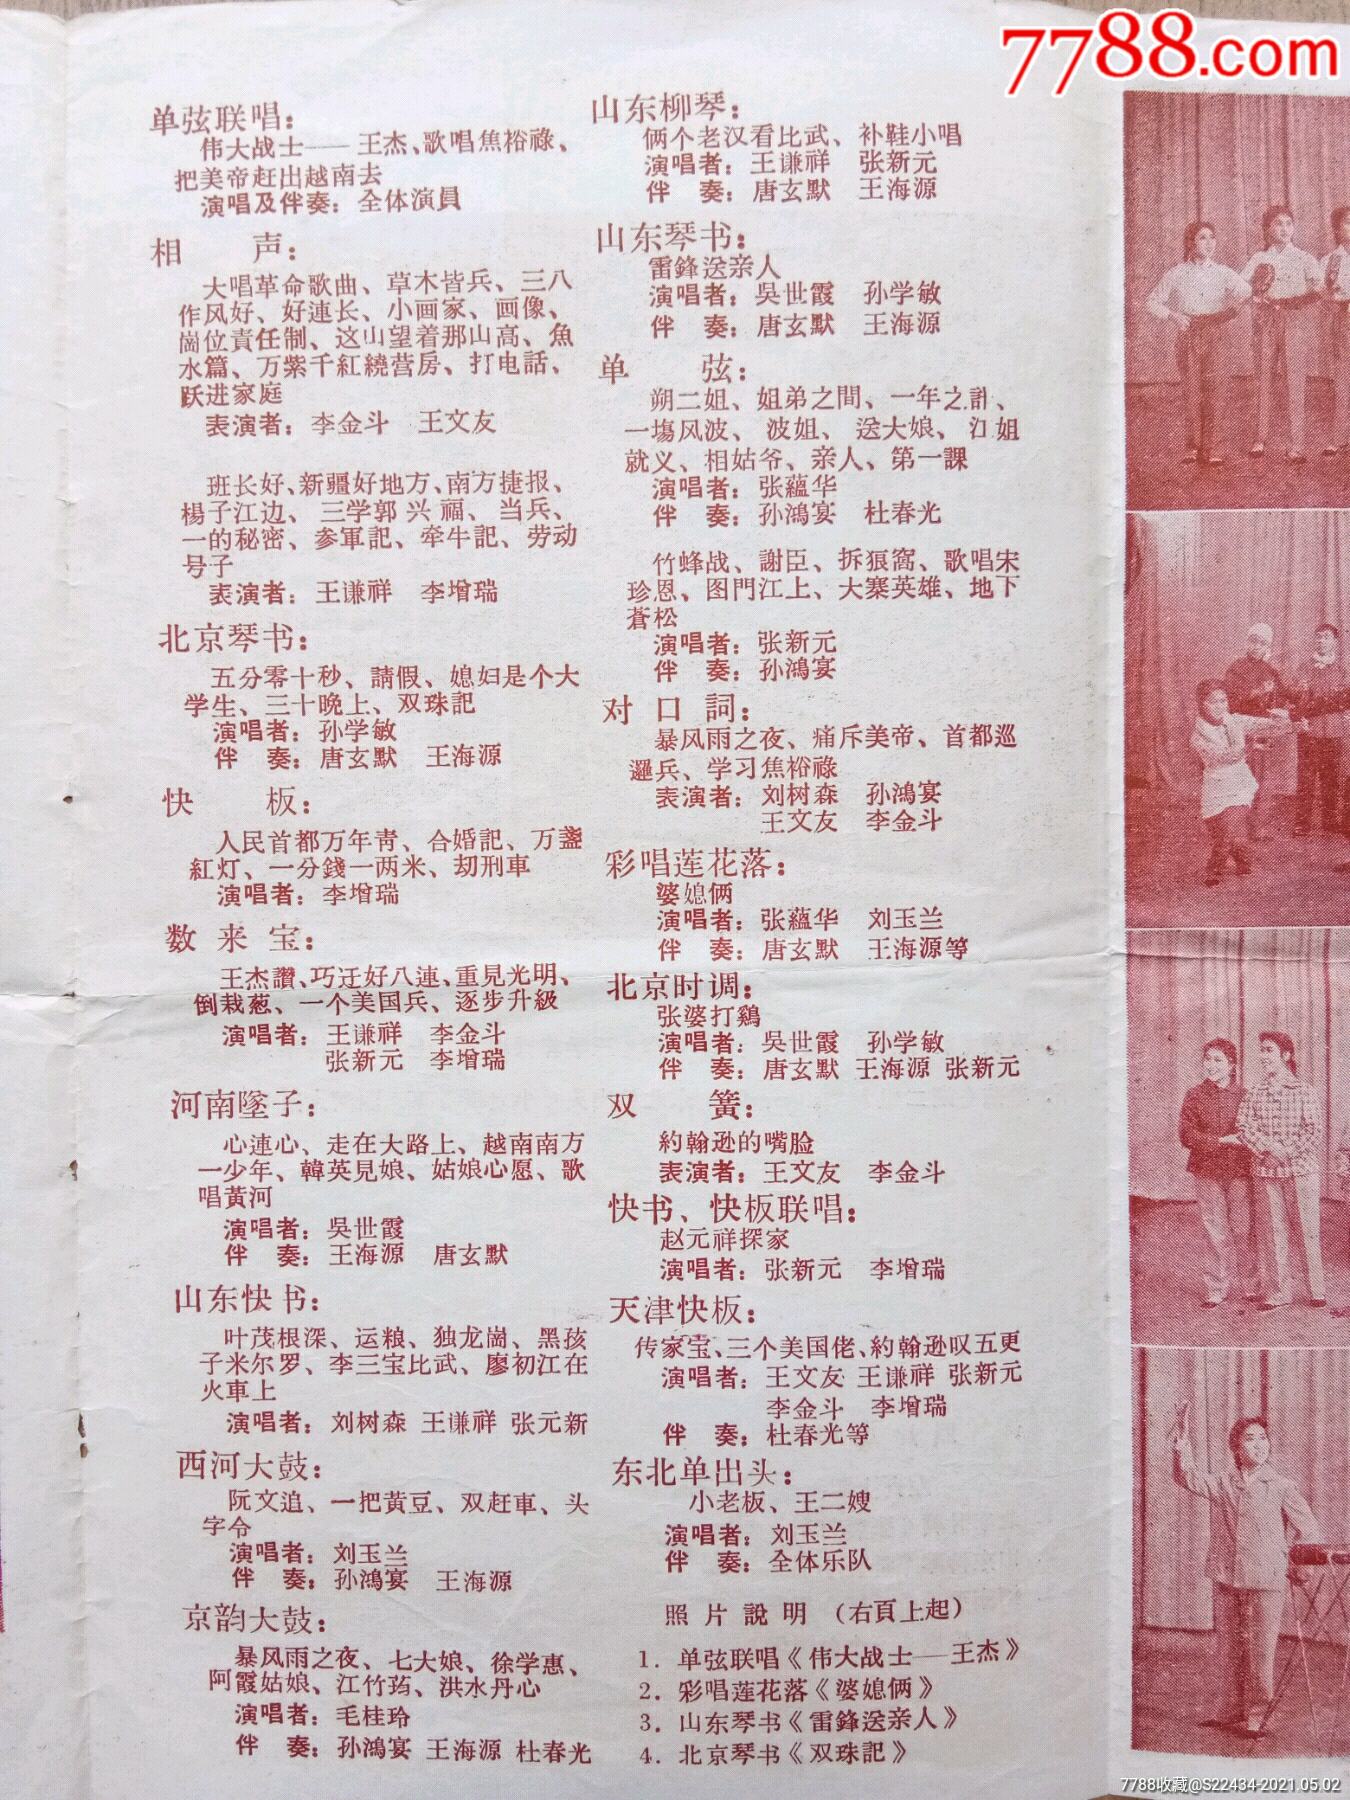 7788.com
单弦联唱：
伟大战士——王杰、歌唱焦裕祿、
把美帝赶出越南去
演唱及伴奏：全体演員
相　声：
大唱革命歌曲、草木皆兵、三八
作风好、好連长、小画家、画像、
崗位責任制、这山望着那山高、魚
水篇、万紫千紅繞营房、打电話、
跃进家庭
表演者：李金斗　王文友
班长好、新疆好地方、南方捷报、
楊子江边、三学郭兴福、当兵、
一的秘密、参軍記、牵牛記、劳动
号子
表演者：王谦祥　李增瑞
北京琴书：
五分零十秒、請假、媳妇是个大
学生、三十晚上、双珠記
演唱者：孙学敏
伴　奏：唐玄默　王海源
快　板：
人民首都万年靑、合婚記、万盞
紅灯、一分錢一两米、刧刑車
演唱者：李增瑞
数来宝：
王杰讚、巧迂好八連、重見光明、
倒栽葱、一个美国兵、逐步升級
演唱者：王谦祥　李金斗
张新元　李增瑞
河南墜子：
心連心、走在大路上、越南南方
一少年、韓英見娘、姑娘心愿、歌
唱黃河
演唱者：吳世霞
伴　奏：王海源　唐玄默
山东快书：
叶茂根深、运粮、独龙崗、黑孩
子米尔罗、李三宝比武、廖初江在
火車上
演唱者：刘树森　王谦祥　张元新
西河大鼓：
阮文追、一把黃豆、双赶車、头
字令
演唱者：刘玉兰
伴　奏：孙鴻宴　王海源
京韵大鼓：
暴风雨之夜、七大娘、徐学惠、
阿霞姑娘、江竹筠、洪水丹心
演唱者：毛桂玲
伴　奏：孙鴻宴　王海源　杜春光
山东柳琴：
俩个老汉看比武、补鞋小唱
演唱者：王谦祥　张新元
伴　奏：唐玄默　王海源
山东琴书：
雷鋒送亲人
演唱者：吳世霞　孙学敏
伴　奏：唐玄默　王海源
单　弦：
朔二姐、姐弟之間、一年之計、
一塲风波、波姐、送大娘、江姐
就义、相姑爷、亲人、第一課
演唱者：张蘊华
伴　奏：孙鴻宴　杜春光
竹蜂战、謝臣、拆狼窩、歌唱宋
珍恩、图門江上、大寨英雄、地下
蒼松
演唱者：张新元
伴　奏：孙鴻宴
对口詞：
暴风雨之夜、痛斥美帝、首都巡
邏兵、学习焦裕祿
表演者：刘树森　孙鴻宴
王文友　李金斗
彩唱莲花落：
婆媳俩
演唱者：张蘊华　刘玉兰
伴　奏：唐玄默　王海源等
北京时调：
张婆打鷄
演唱者：吳世霞　孙学敏
伴　奏：唐玄默　王海源　张新元
双　簧：
約翰逊的嘴脸
表演者：王文友　李金斗
快书、快板联唱：
赵元祥探家
演唱者：张新元　李增瑞
天津快板：
传家宝、三个美国佬、約翰逊叹五更
演唱者：王文友　王谦祥　张新元
李金斗　李增瑞
伴　奏：杜春光等
东北单出头：
小老板、王二嫂
演唱者：刘玉兰
伴　奏：全体乐队
照片說明（右頁上起）
1．单弦联唱《伟大战士——王杰》
2．彩唱莲花落《婆媳俩》
3．山东琴书《雷鋒送亲人》
4．北京琴书《双珠記》
7788收藏@S22434-2021.05.02